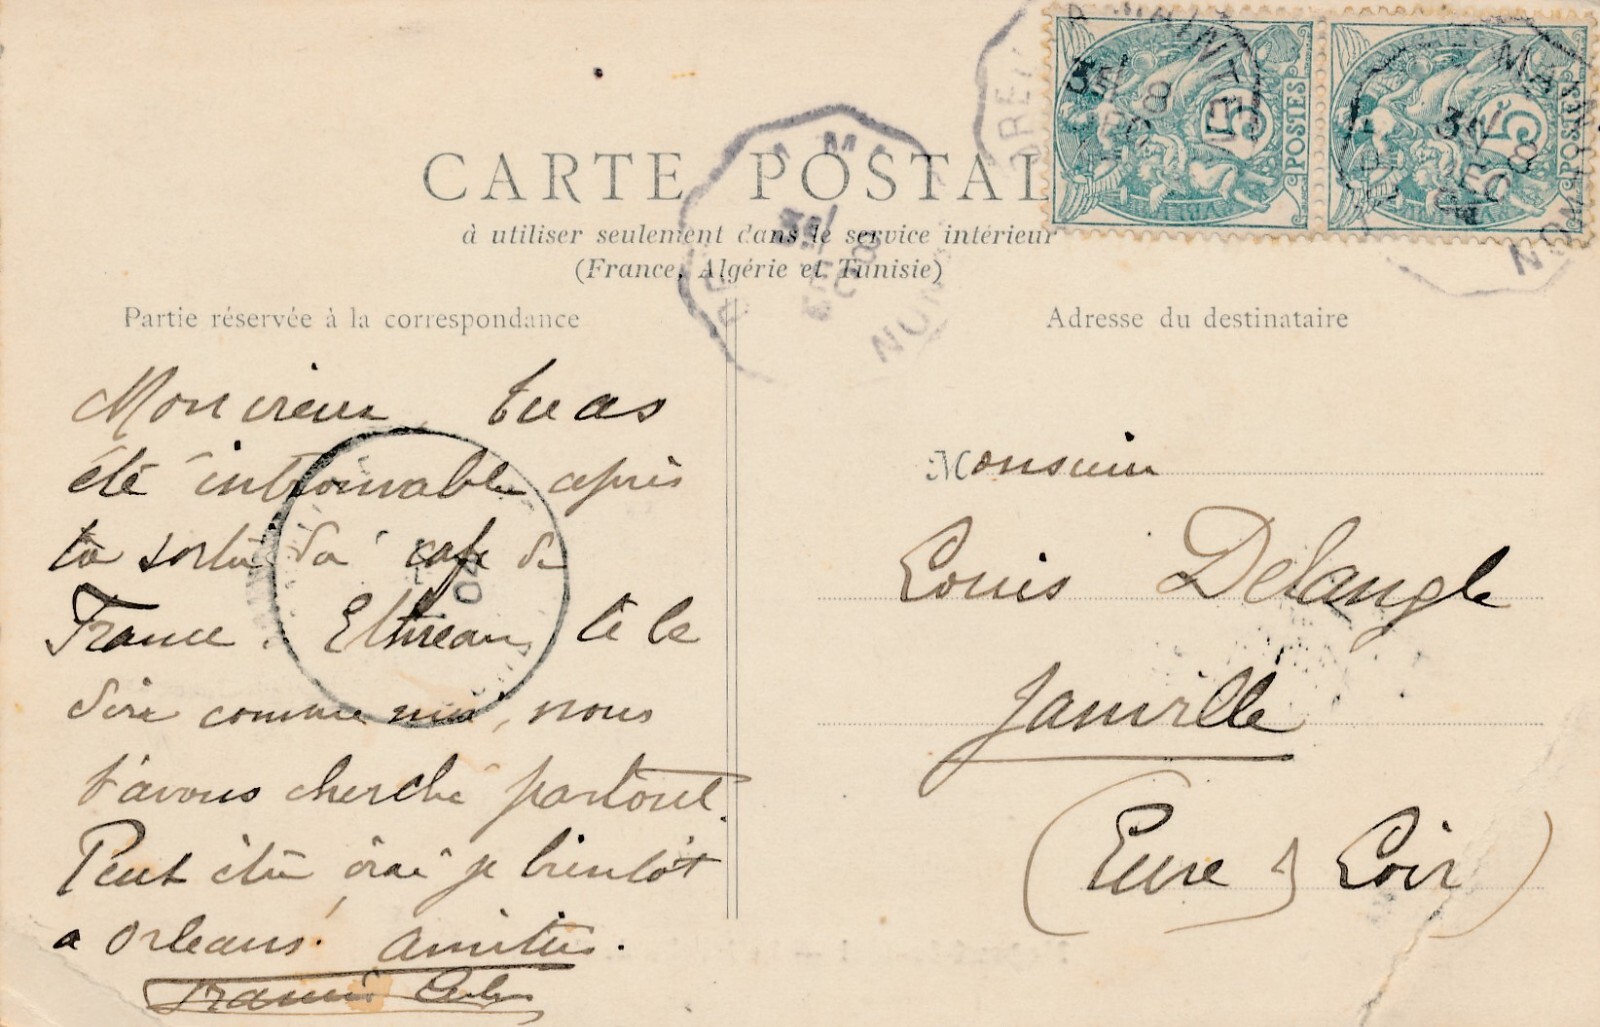 CARTE POSTAL
à utiliser seulement dans le service intérieur
(France, Algérie et Tunisie)
Partie réservée à la correspondance
Adresse du destinataire
5 POSTES
5 POSTES
Mon vieux, tu as
été introuvable après
ta sortie du café de
France. Elthreau te le
dira comme moi, nous
t'avons cherché partout.
Peut être irai je bientôt
a Orleans! amitiés.
Monsieur
Louis Delangle
Janville
(Eure & Loir)